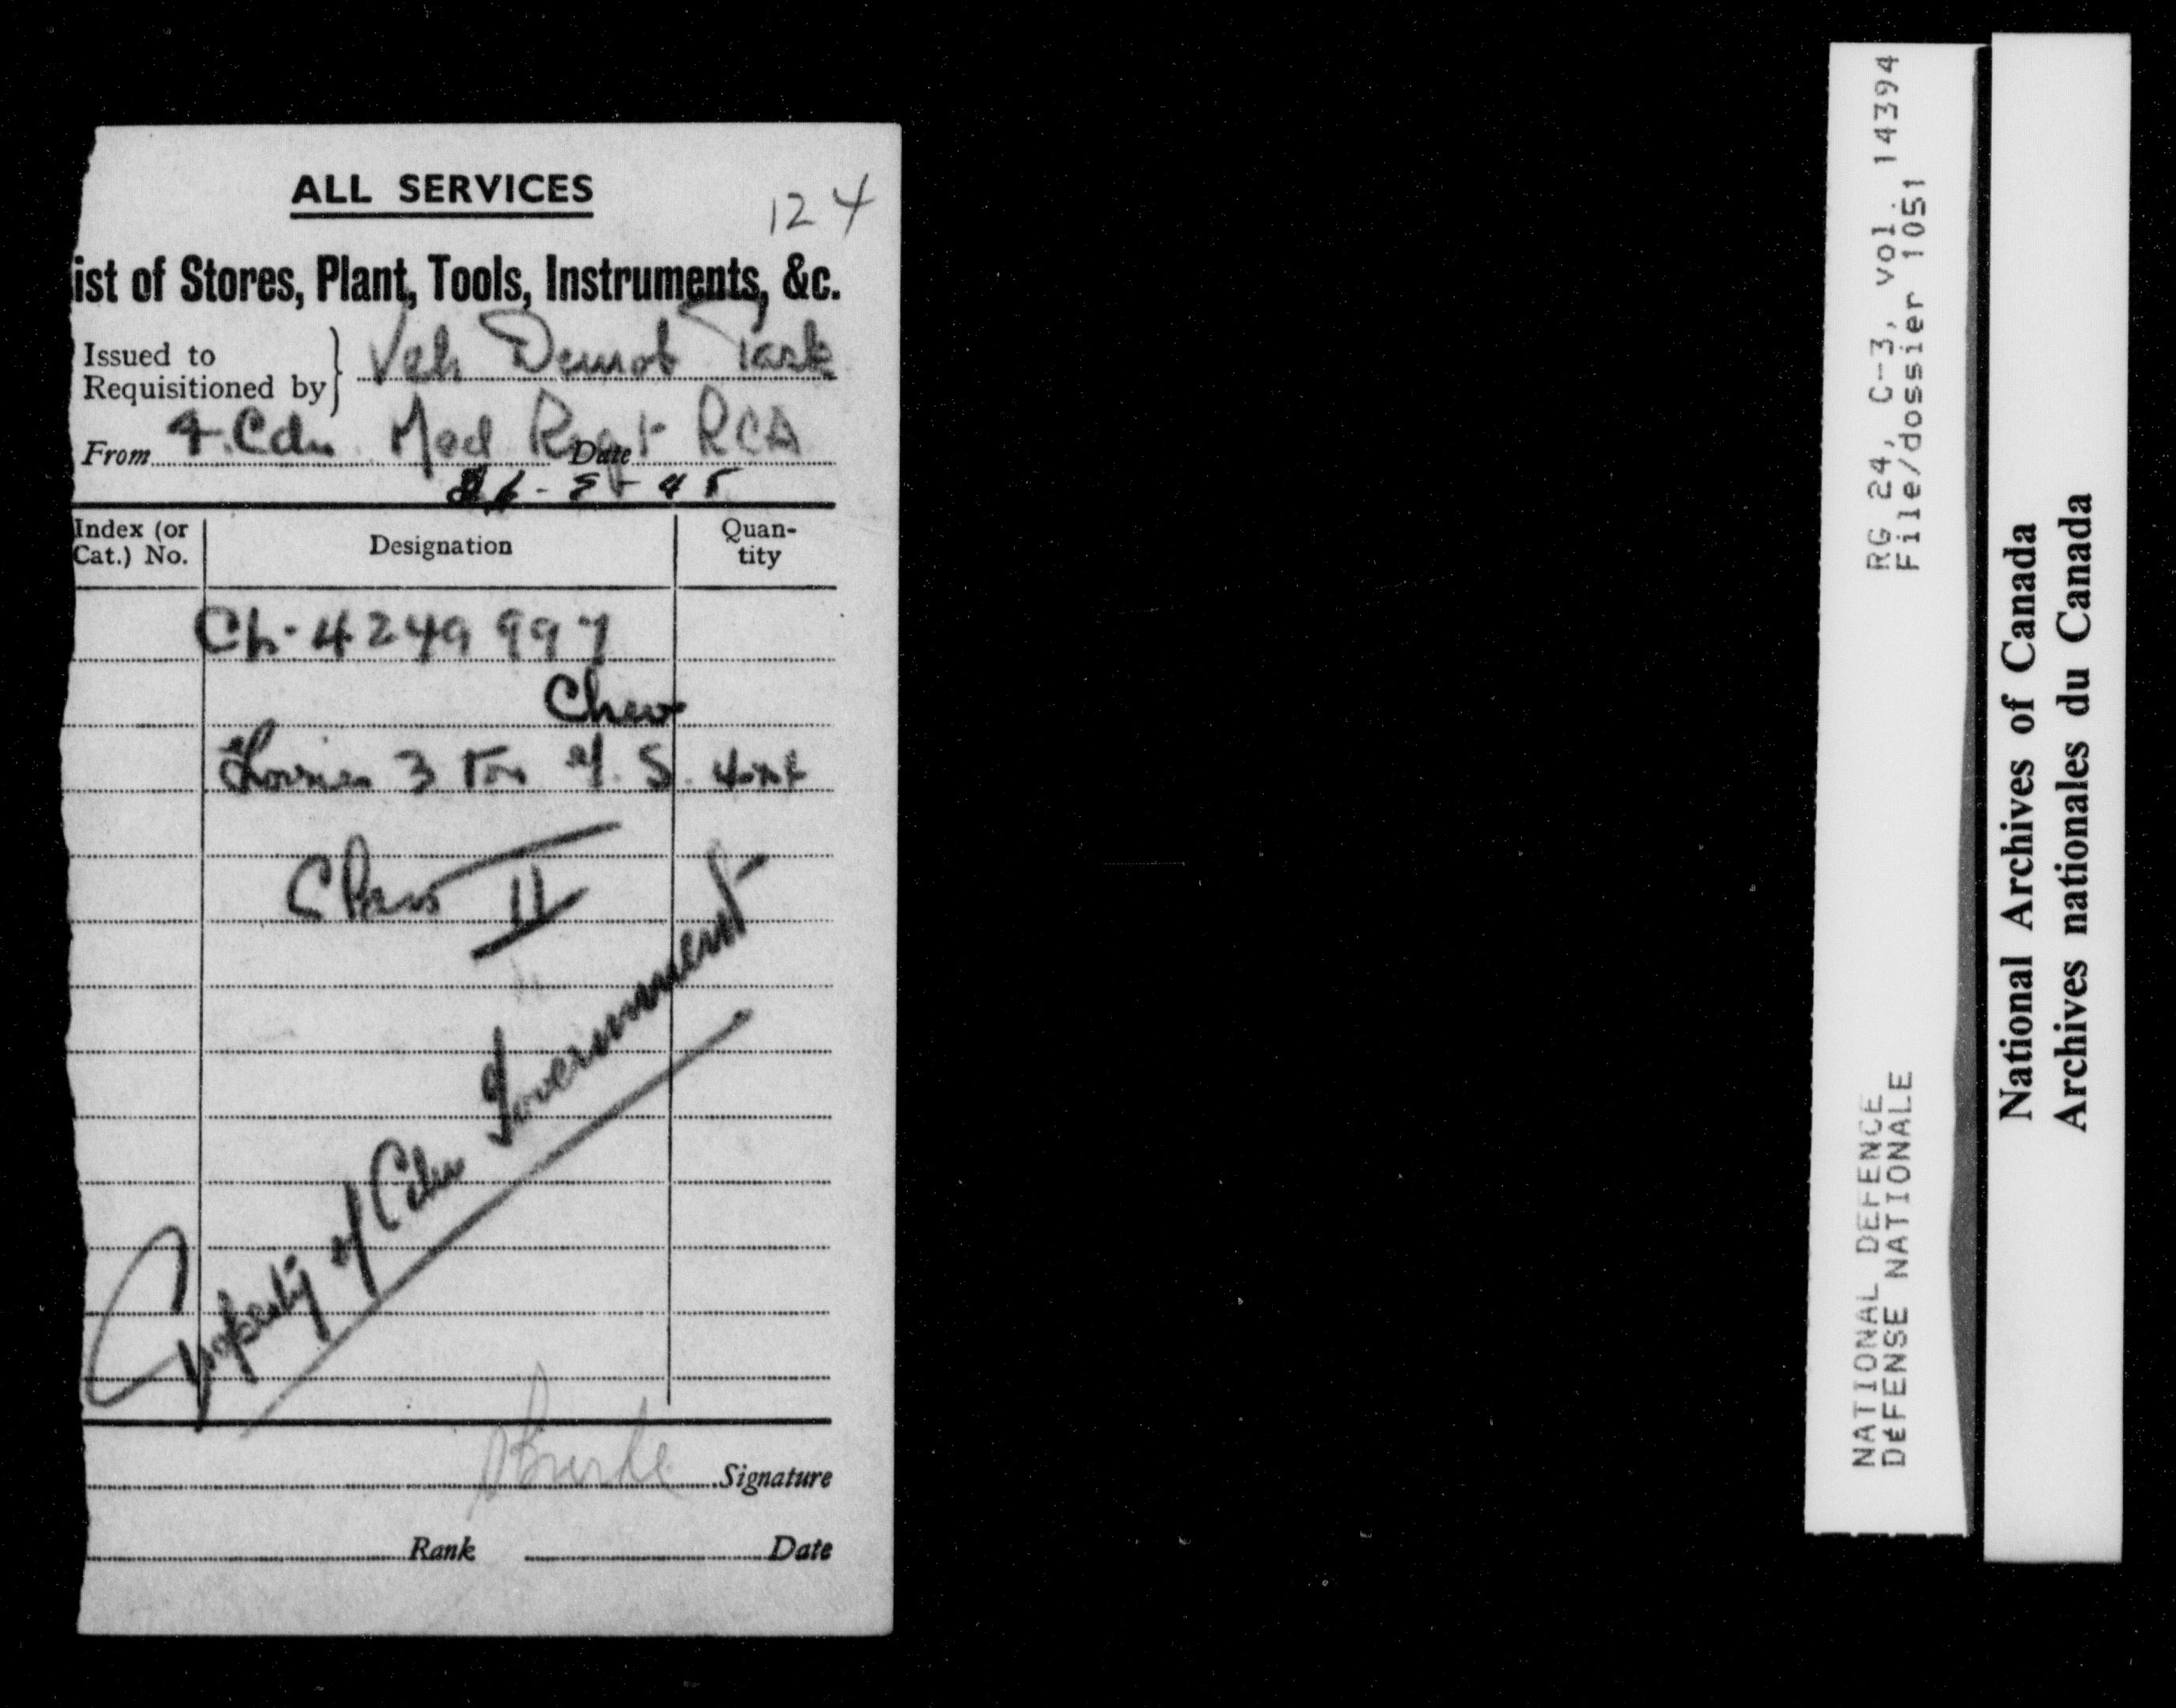 ALL SERVICES
124
ist of Stores, Plant, Tools, Instruments, &c.
Issued to
Requisitioned by } Veh Demob Task
From 4. Cdn Med Regt RCA Date
26-5-45
Index (or Cat.) No. Designation Quantity
Ch. 4249997
Chev
3 Ton G.S. 4x4
Class II
Property of Cdn Government
Signature
Rank Date
RG 24, C-3, vol. 14394
File/dossier 1051
NATIONAL DEFENCE
DÉFENSE NATIONALE
National Archives of Canada
Archives nationales du Canada